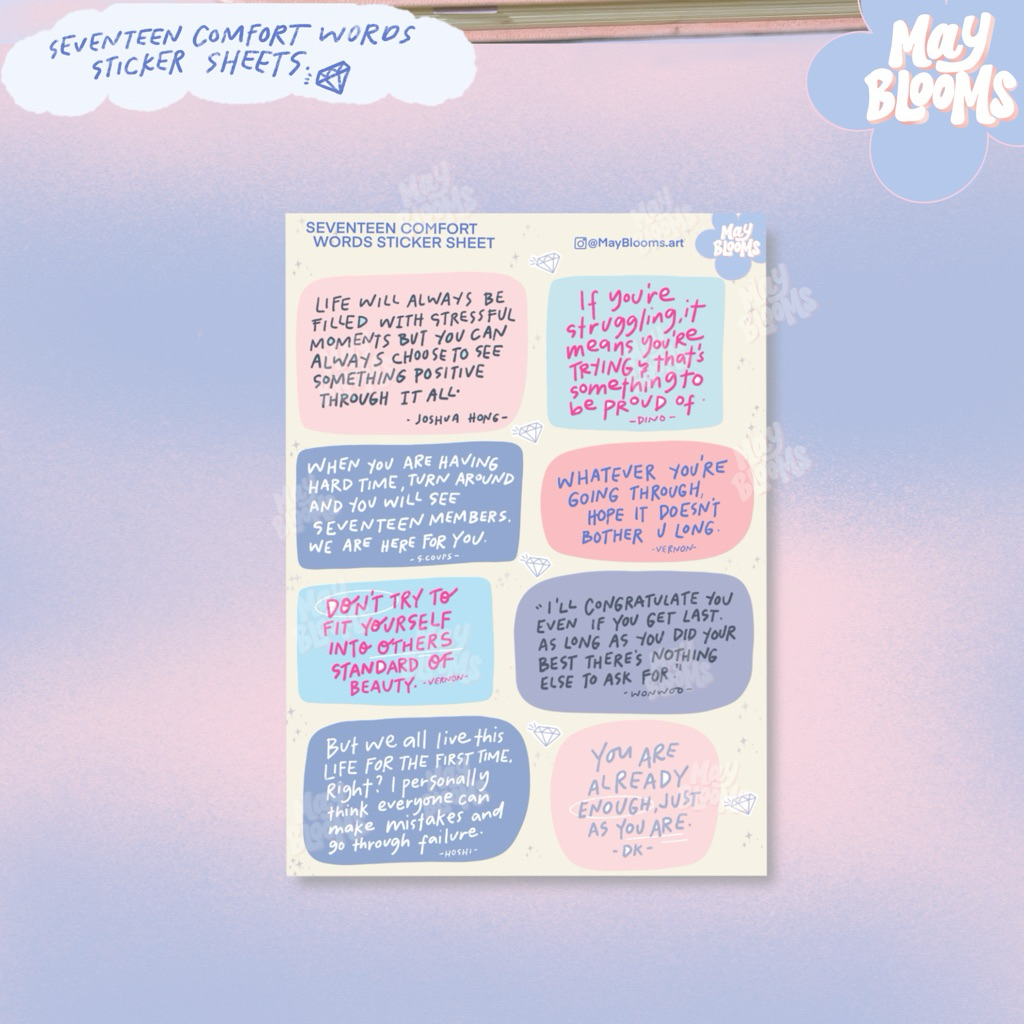 SEVENTEEN COMFORT WORDS
STICKER SHEETS.
May
BLOOMS
SEVENTEEN COMFORT
WORDS STICKER SHEET
@MayBlooms.art
May
BLOOMS
LIFE WILL ALWAYS BE
FILLED WITH STRESSFUL
MOMENTS BUT YOU CAN
ALWAYS CHOOSE TO SEE
SOMETHING POSITIVE
THROUGH IT ALL.
- JOSHUA HONG-
If you're
struggling, it
means you're
TRYING & that's
something to
be PROUD of.
-DINO-
WHEN YOU ARE HAVING
HARD TIME, TURN AROUND
AND YOU WILL SEE
SEVENTEEN MEMBERS.
WE ARE HERE FOR YOU.
-S.COUPS-
WHATEVER YOU'RE
GOING THROUGH,
HOPE IT DOESN'T
BOTHER U LONG.
-VERNON-
DON'T TRY TO
FIT YOURSELF
INTO OTHERS
STANDARD OF
BEAUTY. -VERNON-
"I'LL CONGRATULATE YOU
EVEN IF YOU GET LAST.
AS LONG AS YOU DID YOUR
BEST THERE'S NOTHING
ELSE TO ASK FOR"
-WONWOO-
But we all live this
LIFE FOR THE FIRST TIME.
Right? I personally
think everyone can
make mistakes and
go through failure.
-HOSHI-
YOU ARE
ALREADY
ENOUGH, JUST
AS YOU ARE.
-DK-